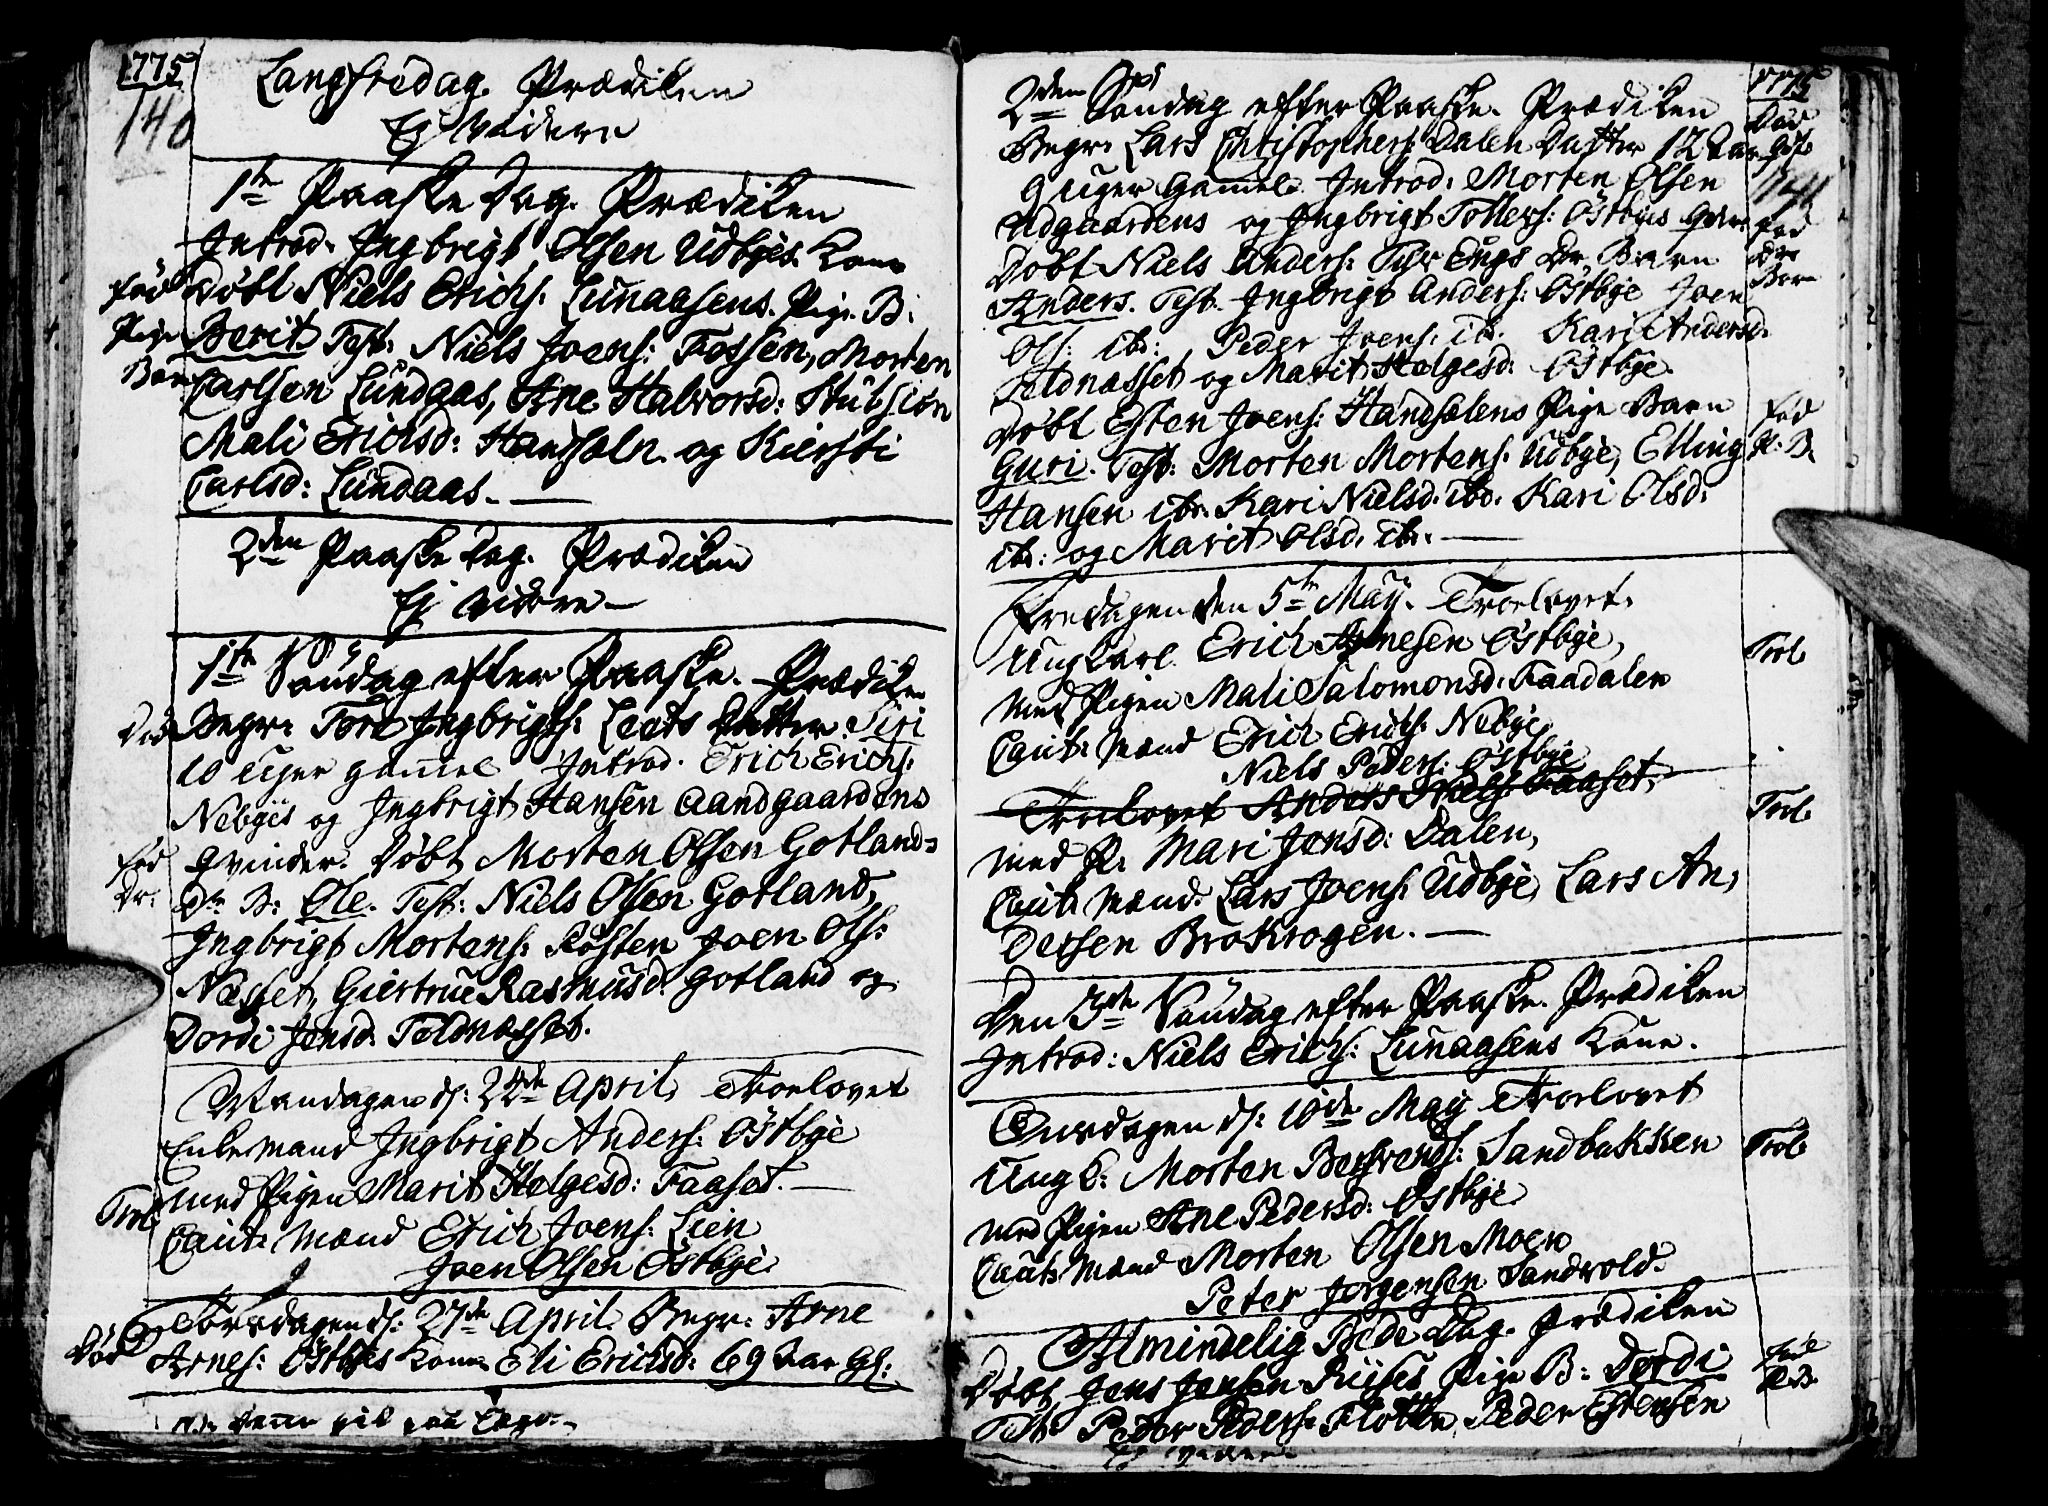 1775
140
Langfredag. Prædiken
Ej videre
1te Paaske Dag. Prædiken
Introd. Ingbrigt Olsen Udbyes Kone
Død Døbt Niels Erichs: Lunaasens Pige B:
Pige Berit Test: Niels Joens: Fossen, Morten
Barn Carlsen Lundaas, Ane Halvorsd:
Mali Erichsd: Handsæln og Kiersti
Carlsd: Lundaas.
2den Paaske Dag. Prædiken
Ej videre
1te Søndag efter Paaske. Prædiken
Død Begr: Tore Ingbrigts: Datter Siri
10 Uger gammel Introd. Erich Erichs:
Nebyes og Ingbrigt Hansen Aandgaardens
Qvinder. Døbt Morten Olsen Gotland=
Fød
Dr: Dr. B: Ole. Test: Niels Olsen Gotland,
Ingbrigt Mortens: Røsten Joen Ols:
Næsset, Giertrue Rasmusd: Gotland og
Dordi Jensd. Toldnæsset.
Mandagen d: 24de April Troelovet
Enkemand Ingbrigt Anders: Østbye
med Pigen Marit Helgesd: Faaset.
Trol.
Caut: Mænd Erich Joens: Lien
Joen Olsen Østbye.
Torsdagen d: 27de April Begr: Arne
Død Arnes: Østbyes Kone Eli Erichsd: 69 Aar Gl:
1775
2den Søndag efter Paaske. Prædiken
Død
Begr: Lars Christophers: Dalen Datter 12 Aar
9 Uger Gamel. Introd: Morten Olsen
141
Udgaardens og Ingbrigt Tollefs: Østbyes Qvin:
Fød
Døbt Niels Anders: Engs Dr. Barn
Dr.
Barn
Anders. Test. Ingbrigt Anders: Østbye Joen
Ols: ibd: Peder Joens: ibd. Kari Andersd.
Toldnæsset og Marit Helgesd: Østbye.
Døbt Esten Joens: Handsælens Pige Barn
Fød
P. B.
Guri. Test: Morten Mortens: Udbye, Elling
Hansen ibd. Kari Nielsd: ibd. Kari Olsd:
ibd: og Marit Olsd. ibd.
Fredagen den 5te May. Troelovet
Ung Karl Erich Arnesen Østbye,
Trol.
med Pigen Mali Salomonsd: Faadalen
Caut: Mænd Erich Erichs: Nebye
Niels Peders: Østbye
Troelovet Anders Faaset,
Trol.
med P. Mari Jonsd: Dalen,
Caut: Mænd. Lars Joens: Udbye, Lars An,
dersen Brokrogen.
Den 3de Søndag efter Paaske. Prædiken
Introd: Niels Erichs: Lunaasens Kone.
Onsdagen d: 10de May Troelovet
Ung K: Morten Bersvends: Sandbakken
Trol.
med Pigen Ane Pedersd: Østbye
Caut: Mænd Morten Olsen Moen
Peter Jørgensen Sandvold.
Almindelig Bede Dag. Prædiken
Døbt Jens Jensen Riises Pige B: Dordi
Test. Peder Peders: Flotten Peder Estensen